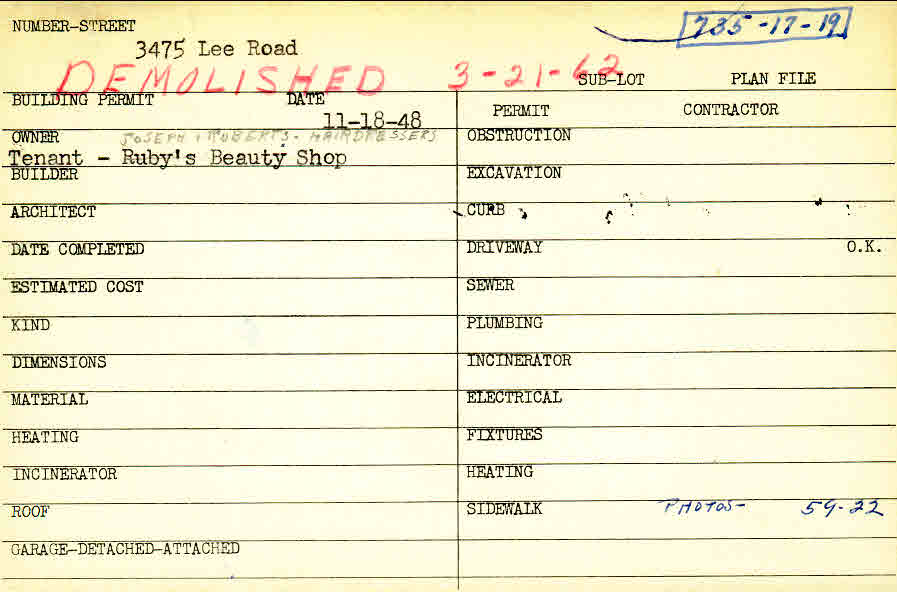 NUMBER-STREET 735-17-19
3475 Lee Road
DEMOLISHED 3-21-62 SUB-LOT PLAN FILE
BUILDING PERMIT DATE
11-18-48
PERMIT CONTRACTOR
OWNER JOSEPH & ROBERTS - HAIRDRESSERS
Tenant - Ruby's Beauty Shop
BUILDER
ARCHITECT
DATE COMPLETED
ESTIMATED COST
KIND
DIMENSIONS
MATERIAL
HEATING
INCINERATOR
ROOF
GARAGE-DETACHED-ATTACHED
OBSTRUCTION
EXCAVATION
CURB
DRIVEWAY O.K.
SEWER
PLUMBING
INCINERATOR
ELECTRICAL
FIXTURES
HEATING
SIDEWALK PHOTOS- 59-22